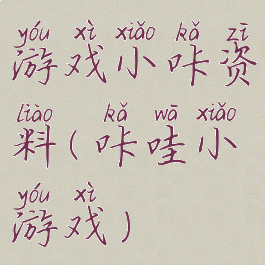 yóu xì xiǎo kǎ zī
游戏小咔资
liào kǎ wā xiǎo
料(咔哇小
yóu xì
游戏)